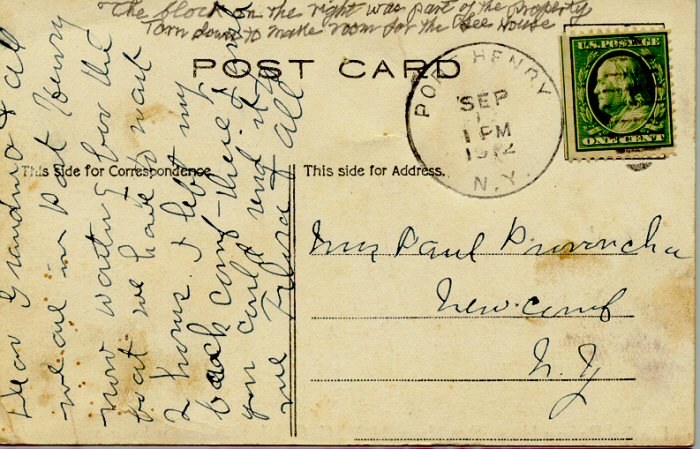 The block on the right was part of the property
Torn down to make room for the Lee House
POST CARD
PORT HENRY
SEP
1 PM
1912
N.Y.
U.S. POSTAGE
ONE CENT
This Side for Correspondence
This side for Address.
Dear Grandma & all
we are in Port Henry
now waiting for the
boat we have to wait
2 hours. I left my
back comb there if
you could send it to
me
& all
Mrs Paul Provoncha
Newcomb
N. Y